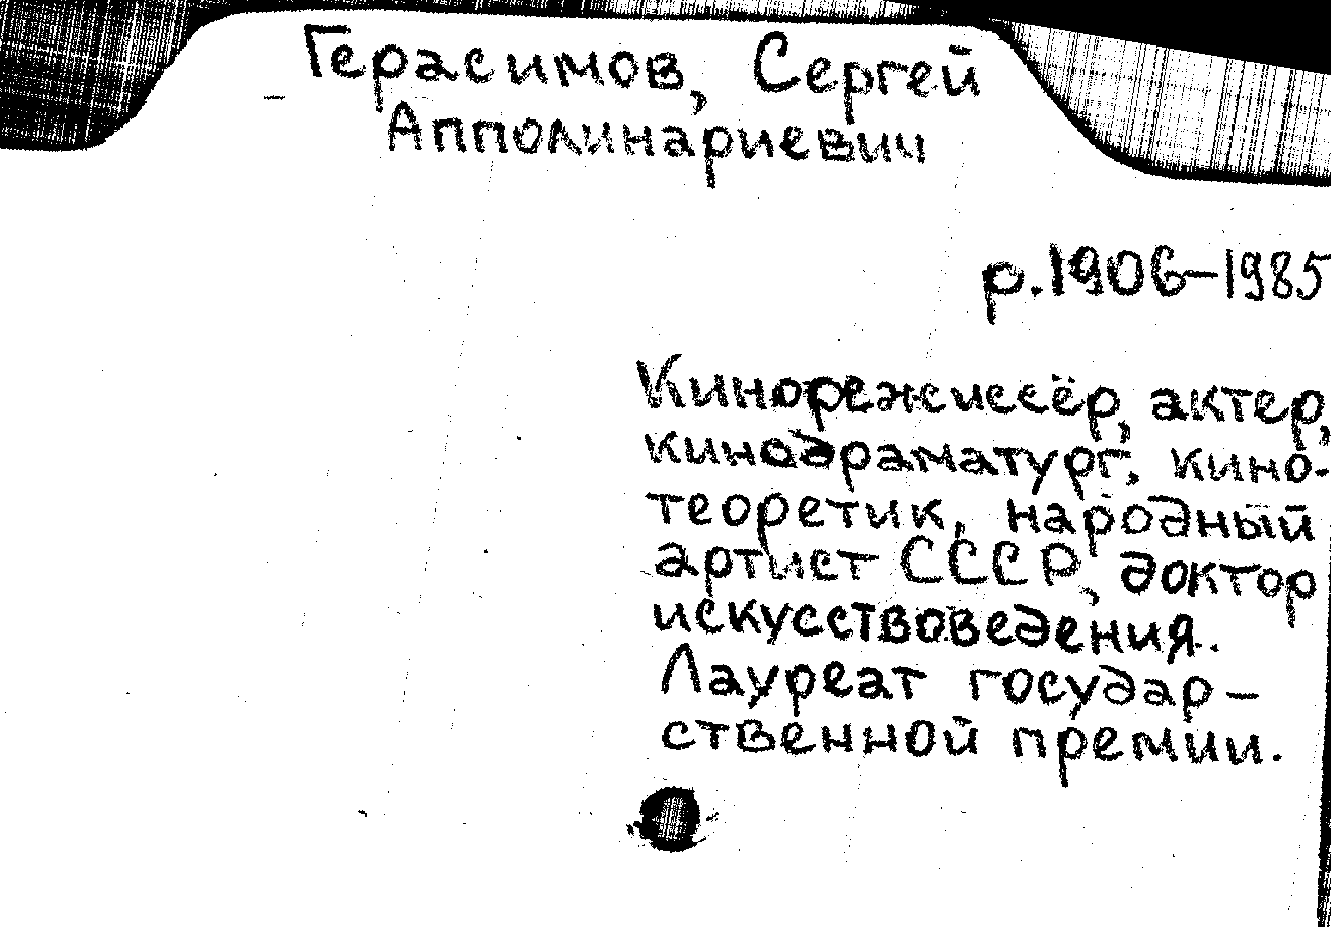 Герасимов, Сергей
Апполинариевич
р. 1906-1985
Кинорежиссёр, актер,
кинодраматург, кино-
теоретик, народный
артист СССР, доктор
искусствоведения.
Лауреат государ-
ственной премии.